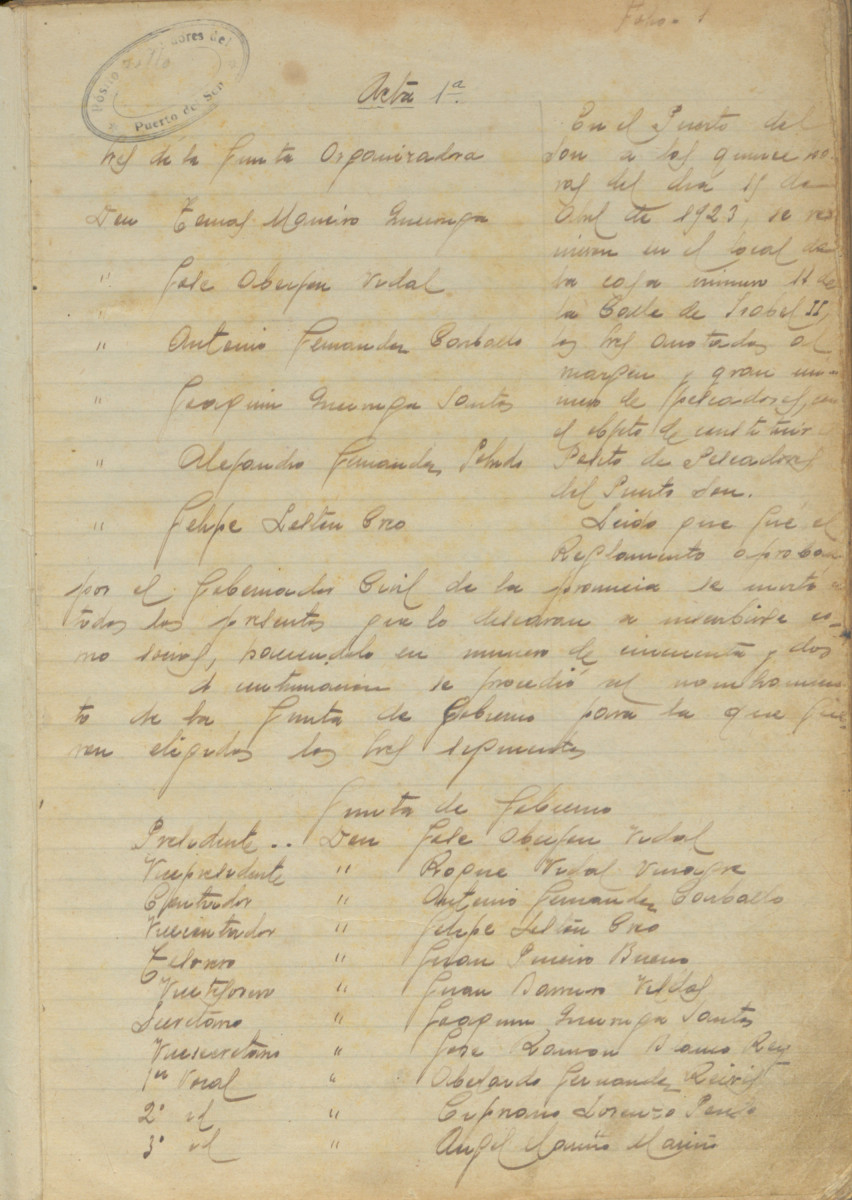 Folio 1
Pósito Pescadores del
Puerto del Son
Acta 1ª
Sres de la Junta Organizadora
Don Tomas Maneiro
" Jose Oberfin Vidal
" Antonio Fernandez Carballo
" Joaquin Santos
" Alejandro Fernandez
" Felipe Lestón Creo
En el Puerto del
Son a las quince ho-
ras del dia 15 de
Abril de 1923, se reu
nieron en el local de
la casa numero 11 de
la Calle de Isabel II,
los Sres anotados al
margen y gran nu-
mero de Pescadores, con
el objeto de constituir el
Posito de Pescadores
del Puerto Son.
Leido que fué el
Reglamento aprobado
por el Gobernador Civil de la provincia se invito a
todos los presentes que lo desearan a inscribirse co-
mo socios, haciendolo en numero de cincuenta y dos
A continuacion se procedió al nombramien
to de la Junta de Gobierno para la que fue-
ron eligidos los Sres siguientes
Junta de Gobierno
Presidente .. Don Jose Oberfin Vidal
Vicepresidente " Roque Vidal Vinagre
Contador " Antonio Fernandez Carballo
Vicecontador " Felipe Lestón Creo
Tesorero " Juan Pineiro Bueno
Vicetesorero " Juan Barreiro Vidal
Secretario " Joaquin Santos
Vicesecretario " Jose Ramon Blanco Rey
1er Vocal " Abelardo Fernandez
2º id " Cipriano Lorenzo
3º id " Angel Mariño Mariño